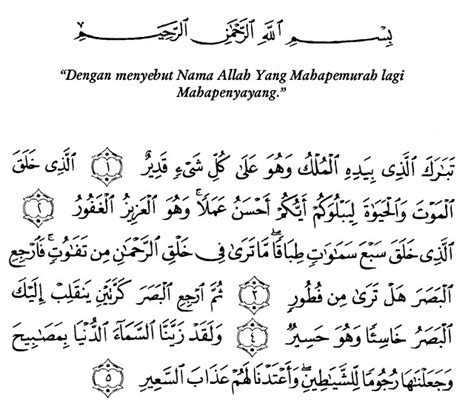 بِسْمِ اللَّهِ الرَّحْمَٰنِ الرَّحِيمِ
“Dengan menyebut Nama Allah Yang Mahapemurah lagi
Mahapenyayang.”
تَبَٰرَكَ الَّذِى بِيَدِهِ الْمُلْكُ وَهُوَ عَلَىٰ كُلِّ شَىْءٍ قَدِيرٌ ١ الَّذِى خَلَقَ
الْمَوْتَ وَالْحَيَوٰةَ لِيَبْلُوَكُمْ أَيُّكُمْ أَحْسَنُ عَمَلًا ۚ وَهُوَ الْعَزِيزُ الْغَفُورُ ٢
الَّذِى خَلَقَ سَبْعَ سَمَٰوَٰتٍ طِبَاقًا ۖ مَّا تَرَىٰ فِى خَلْقِ الرَّحْمَٰنِ مِن تَفَٰوُتٍ ۖ فَارْجِعِ
الْبَصَرَ هَلْ تَرَىٰ مِن فُطُورٍ ٣ ثُمَّ ارْجِعِ الْبَصَرَ كَرَّتَيْنِ يَنقَلِبْ إِلَيْكَ
الْبَصَرُ خَاسِئًا وَهُوَ حَسِيرٌ ٤ وَلَقَدْ زَيَّنَّا السَّمَآءَ الدُّنْيَا بِمَصَٰبِيحَ
وَجَعَلْنَٰهَا رُجُومًا لِّلشَّيَٰطِينِ ۖ وَأَعْتَدْنَا لَهُمْ عَذَابَ السَّعِيرِ ٥